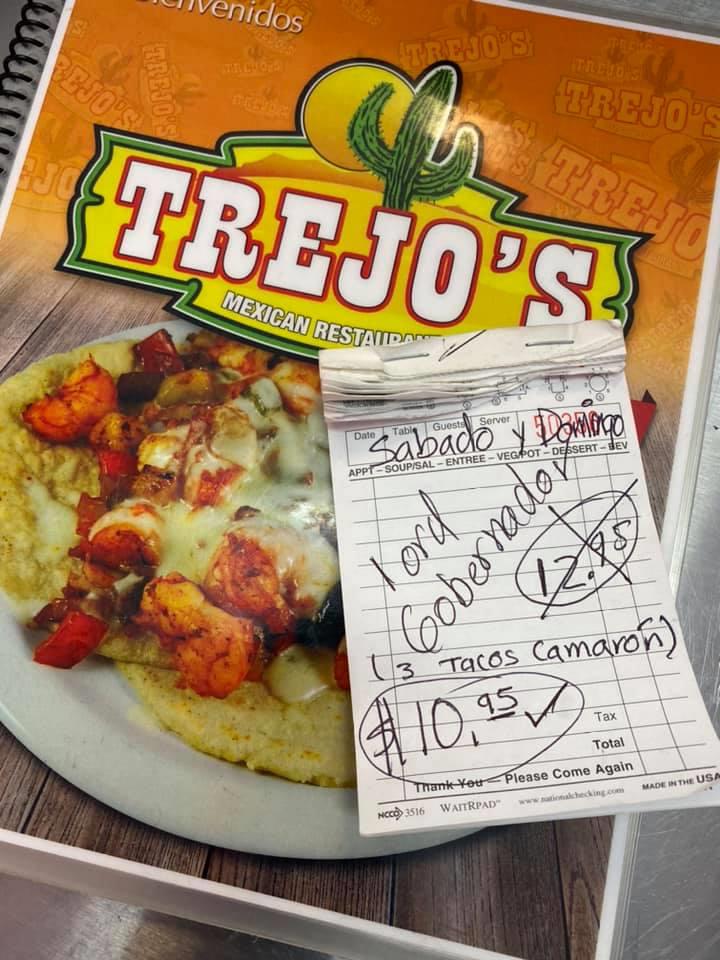 Bienvenidos
TREJO'S
TREJO'S
TREJO'S
TREJO'S
TREJO'S
MEXICAN RESTAURAN
Date Table Guests Server
Sabado y Domingo
APPT – SOUP/SAL – ENTREE – VEG/POT – DESSERT – BEV
1 ord
Gobernador
12.95
(3 Tacos Camarón)
$10.95 ✓
Tax
Total
Thank You — Please Come Again
NCCO 3516 WAITRPAD™ www.nationalchecking.com MADE IN THE USA